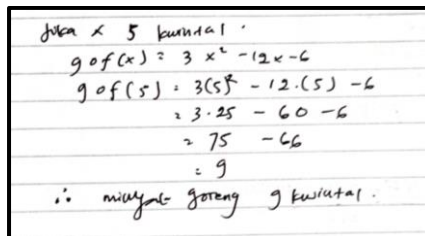 Jika x 5 kwintal.
g o f(x) = 3x² - 12x - 6
g o f(5) = 3(5)² - 12.(5) - 6
= 3.25 - 60 - 6
= 75 - 66
= 9
∴ minyak goreng 9 kwintal.